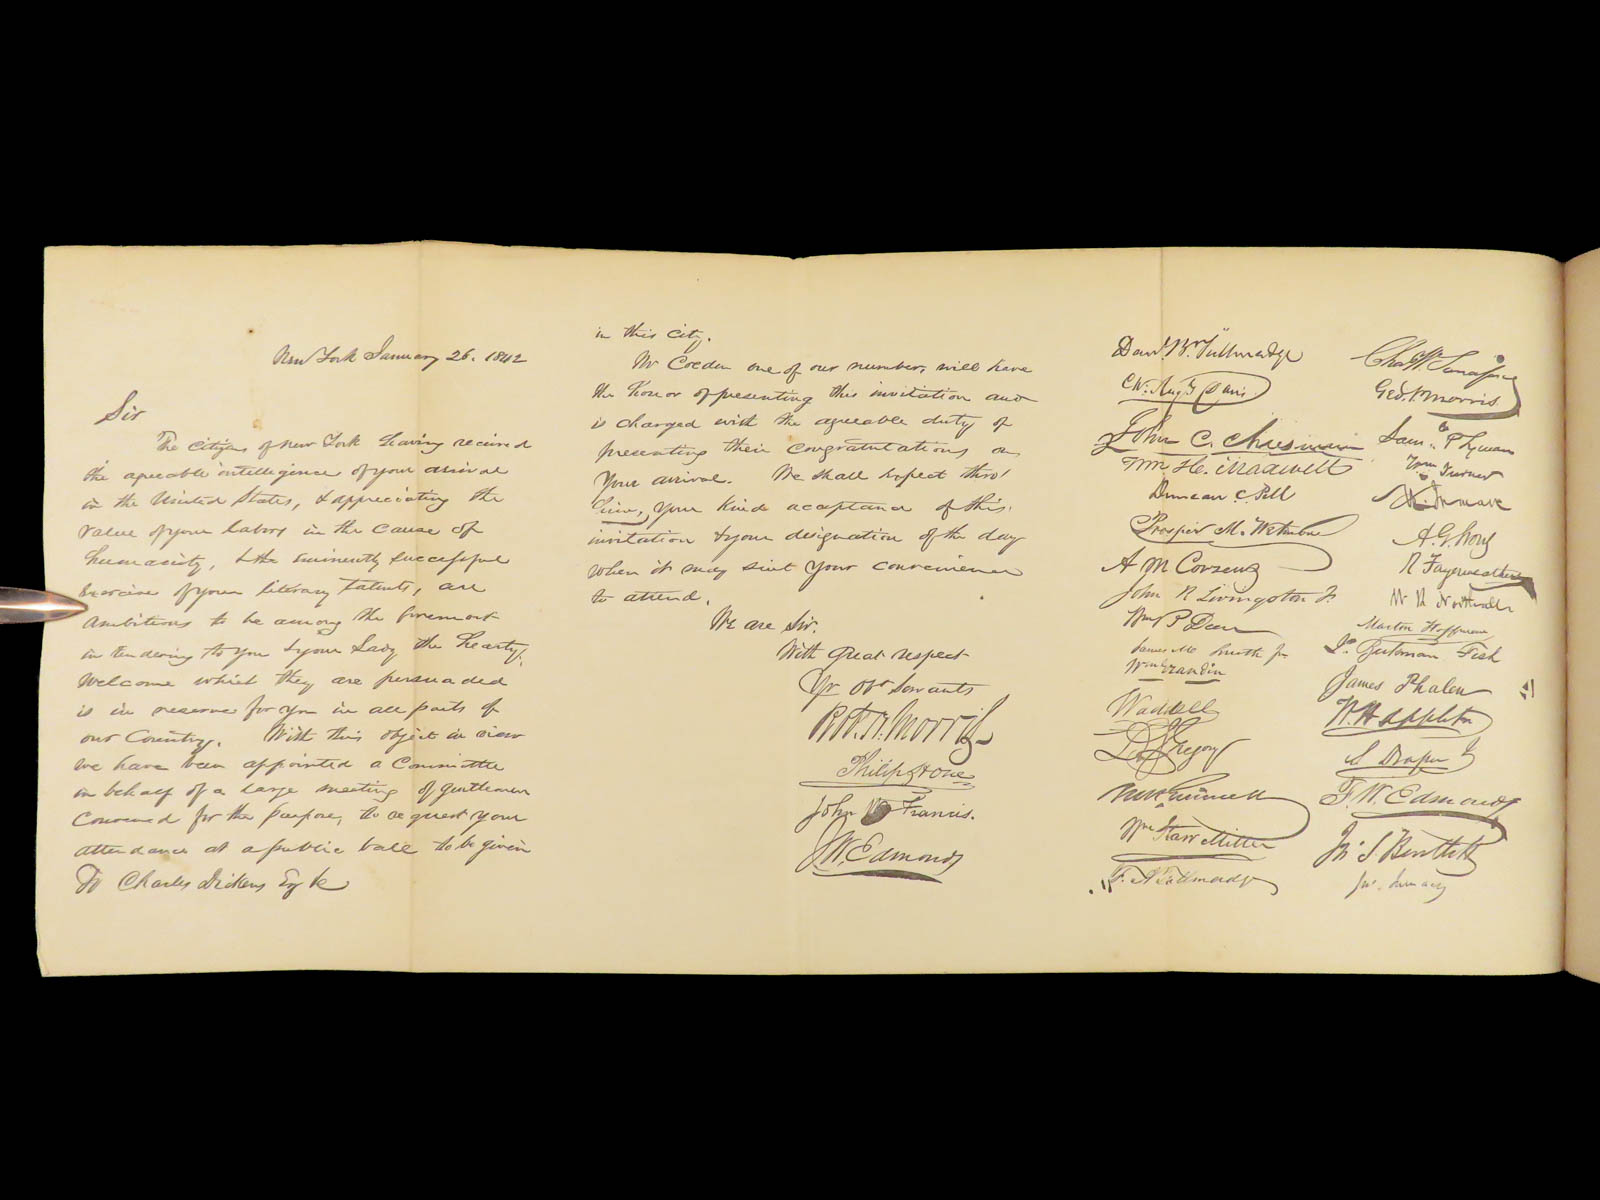 New York January 26. 1842
Sir
The citizens of New York having received
the agreeable intelligence of your arrival
in the United States, & appreciating the
value of your labors in the cause of
humanity, & the eminently successful
exercise of your literary talents, are
ambitious to be among the foremost
in tendering to you & your Lady the hearty
welcome which they are persuaded
is in reserve for you in all parts of
our Country. With this object in view
we have been appointed a Committee
in behalf of a large meeting of gentlemen
convened for the purpose, to request your
attendance at a public ball to be given
To Charles Dickens Esq &c
in this city.
Mr Colden one of our number, will have
the honor of presenting this invitation and
is charged with the agreeable duty of
presenting their congratulations on
your arrival. We shall expect thro'
him, your kind acceptance of this
invitation & your designation of the day
when it may suit your convenience
to attend.
We are Sir.
With great respect
Yr Obt Servants
Robt. H. Morris
Philip Hone
John W Francis.
J. W. Edmonds
Danl. B. Tallmadge
Wm. Augs Davis
John C. Cheesman
Wm. H. Maxwell
Duncan C. Pell
Prosper M. Wetmore
A M Cozzens
John R Livingston Jr.
Wm P Deen
James M. Smith Jr
Waddell
D S Gregory
M H Grinnell
Wm Starr Miller
F. A Tallmadge
Chas W. Sandford
Geo. P Morris
Sam. P Lyman
Wm Turner
R Fayerweather
Martin Hoffman
James Phalen
W. H Appleton
S Draper Jr
F. W. Edmonds
Jno S Bartlett